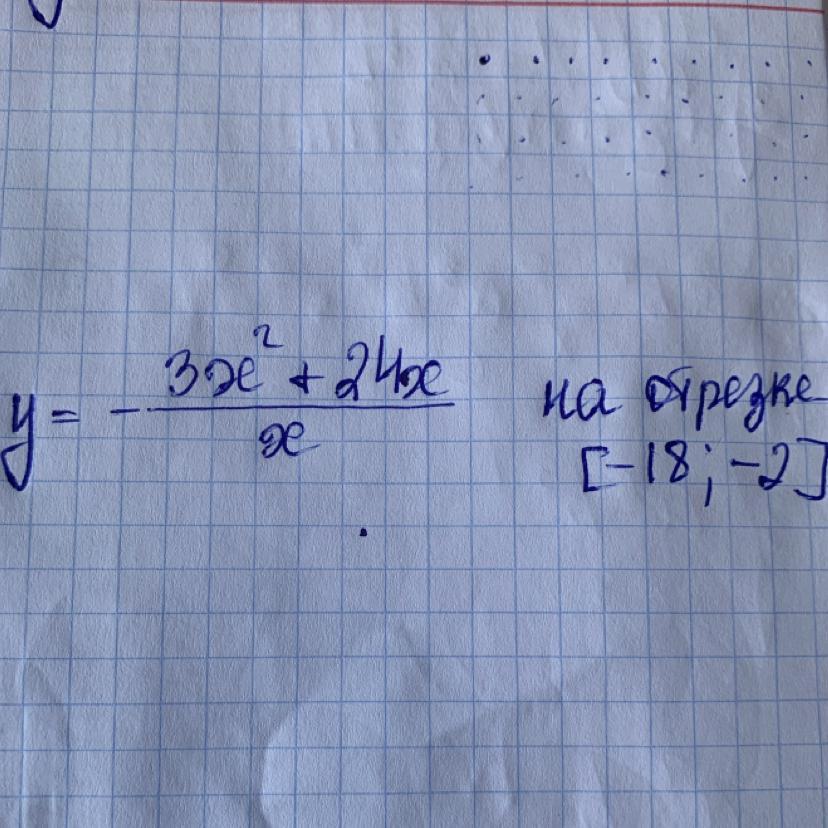 y = - (3x² + 24x) / x на отрезке
[-18; -2]